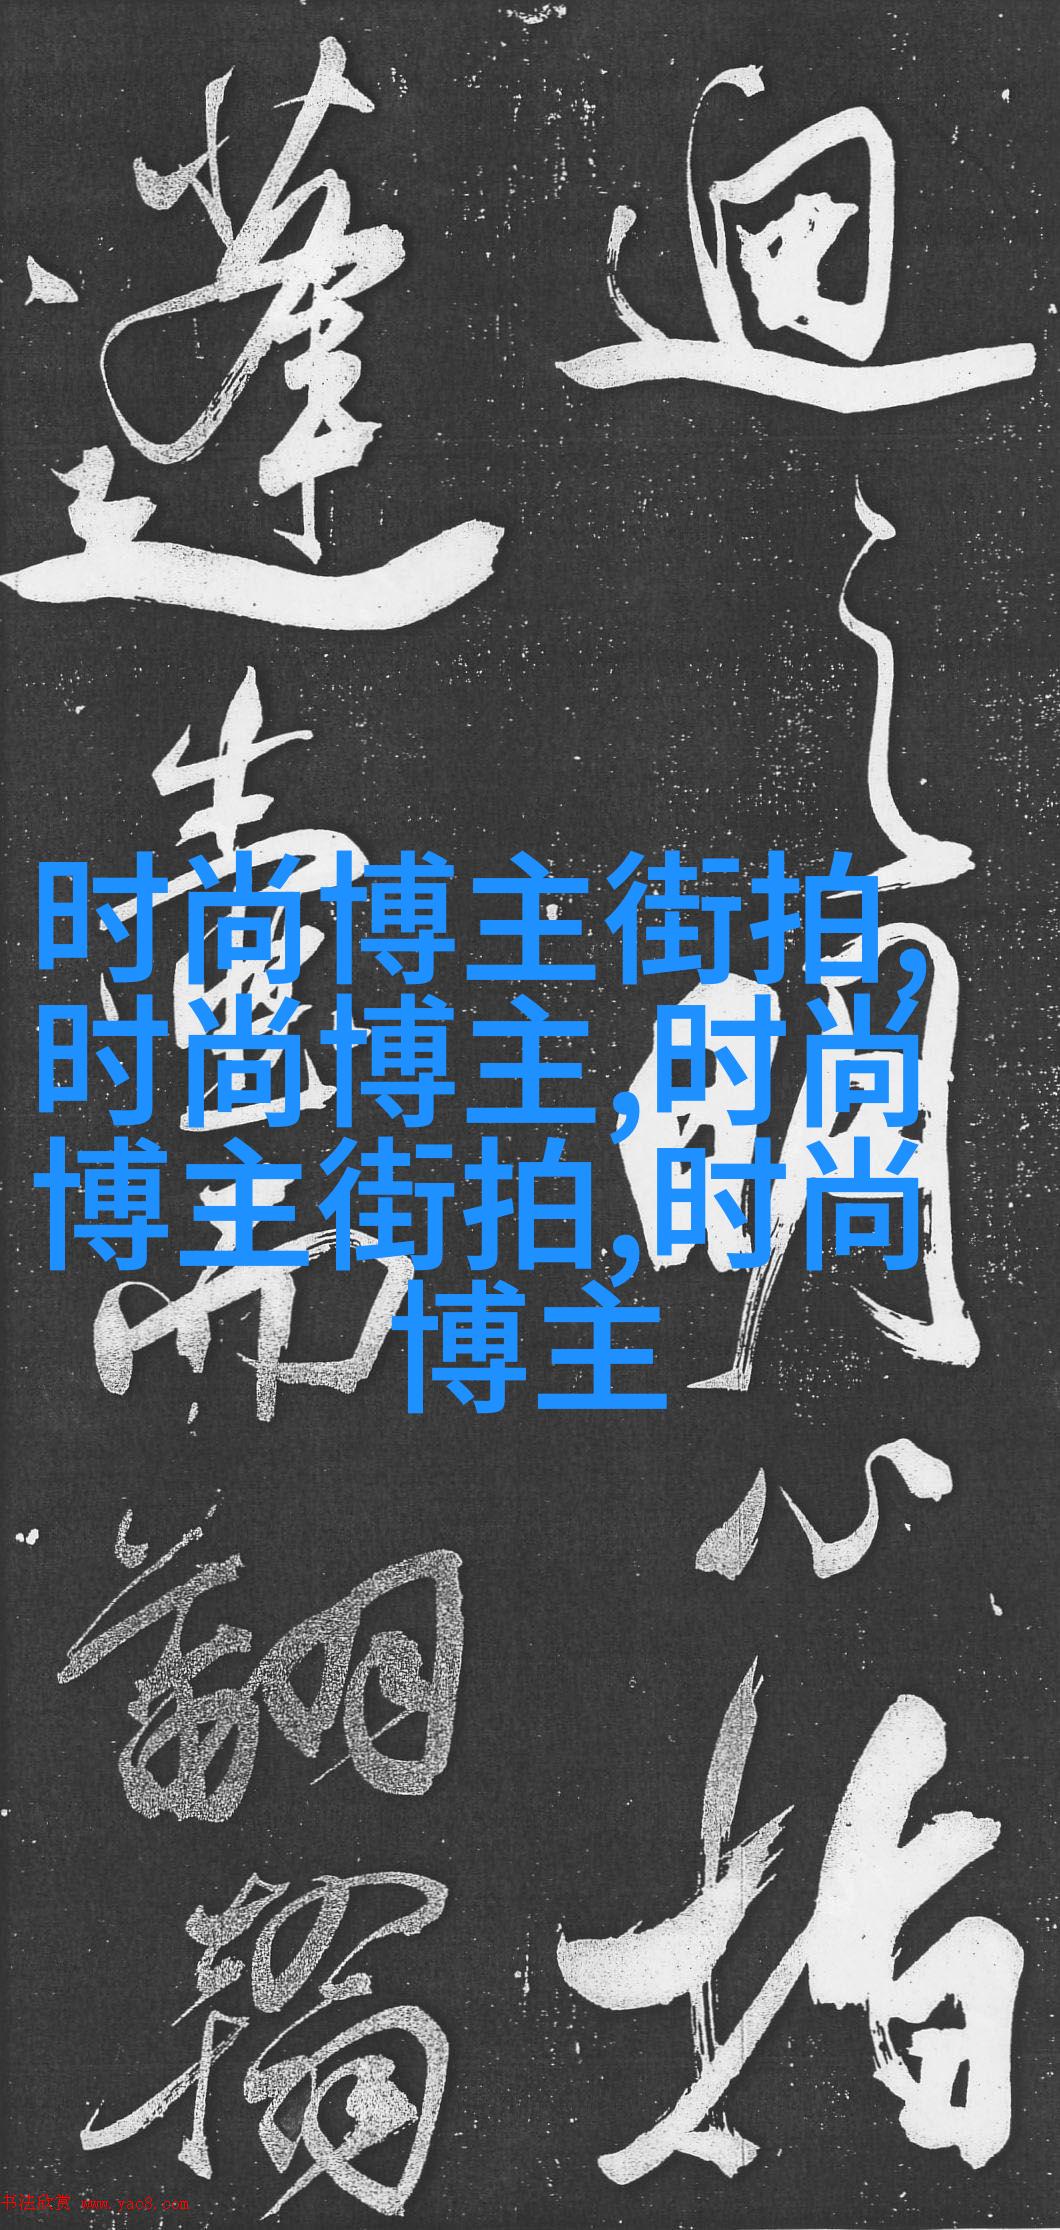 迴之指
蓬而翻
时尚博主街拍,
时尚博主,时尚
博主街拍,时尚
博主
书法欣赏 www.yac8.com